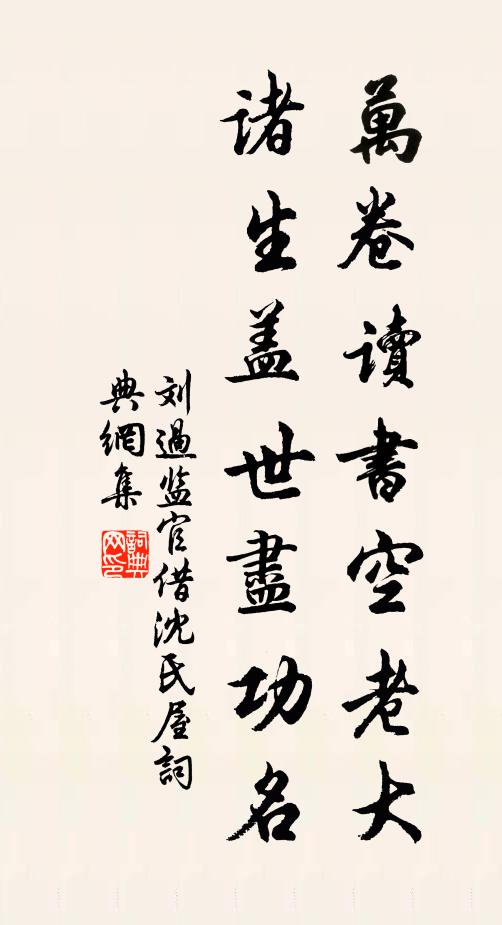 萬卷讀書空老大
諸生盖世盡功名
刘過监官借沈氏屋詞
典網集
詞典
网印